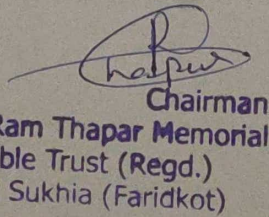 Chairman
Ram Thapar Memorial
ble Trust (Regd.)
Sukhia (Faridkot)